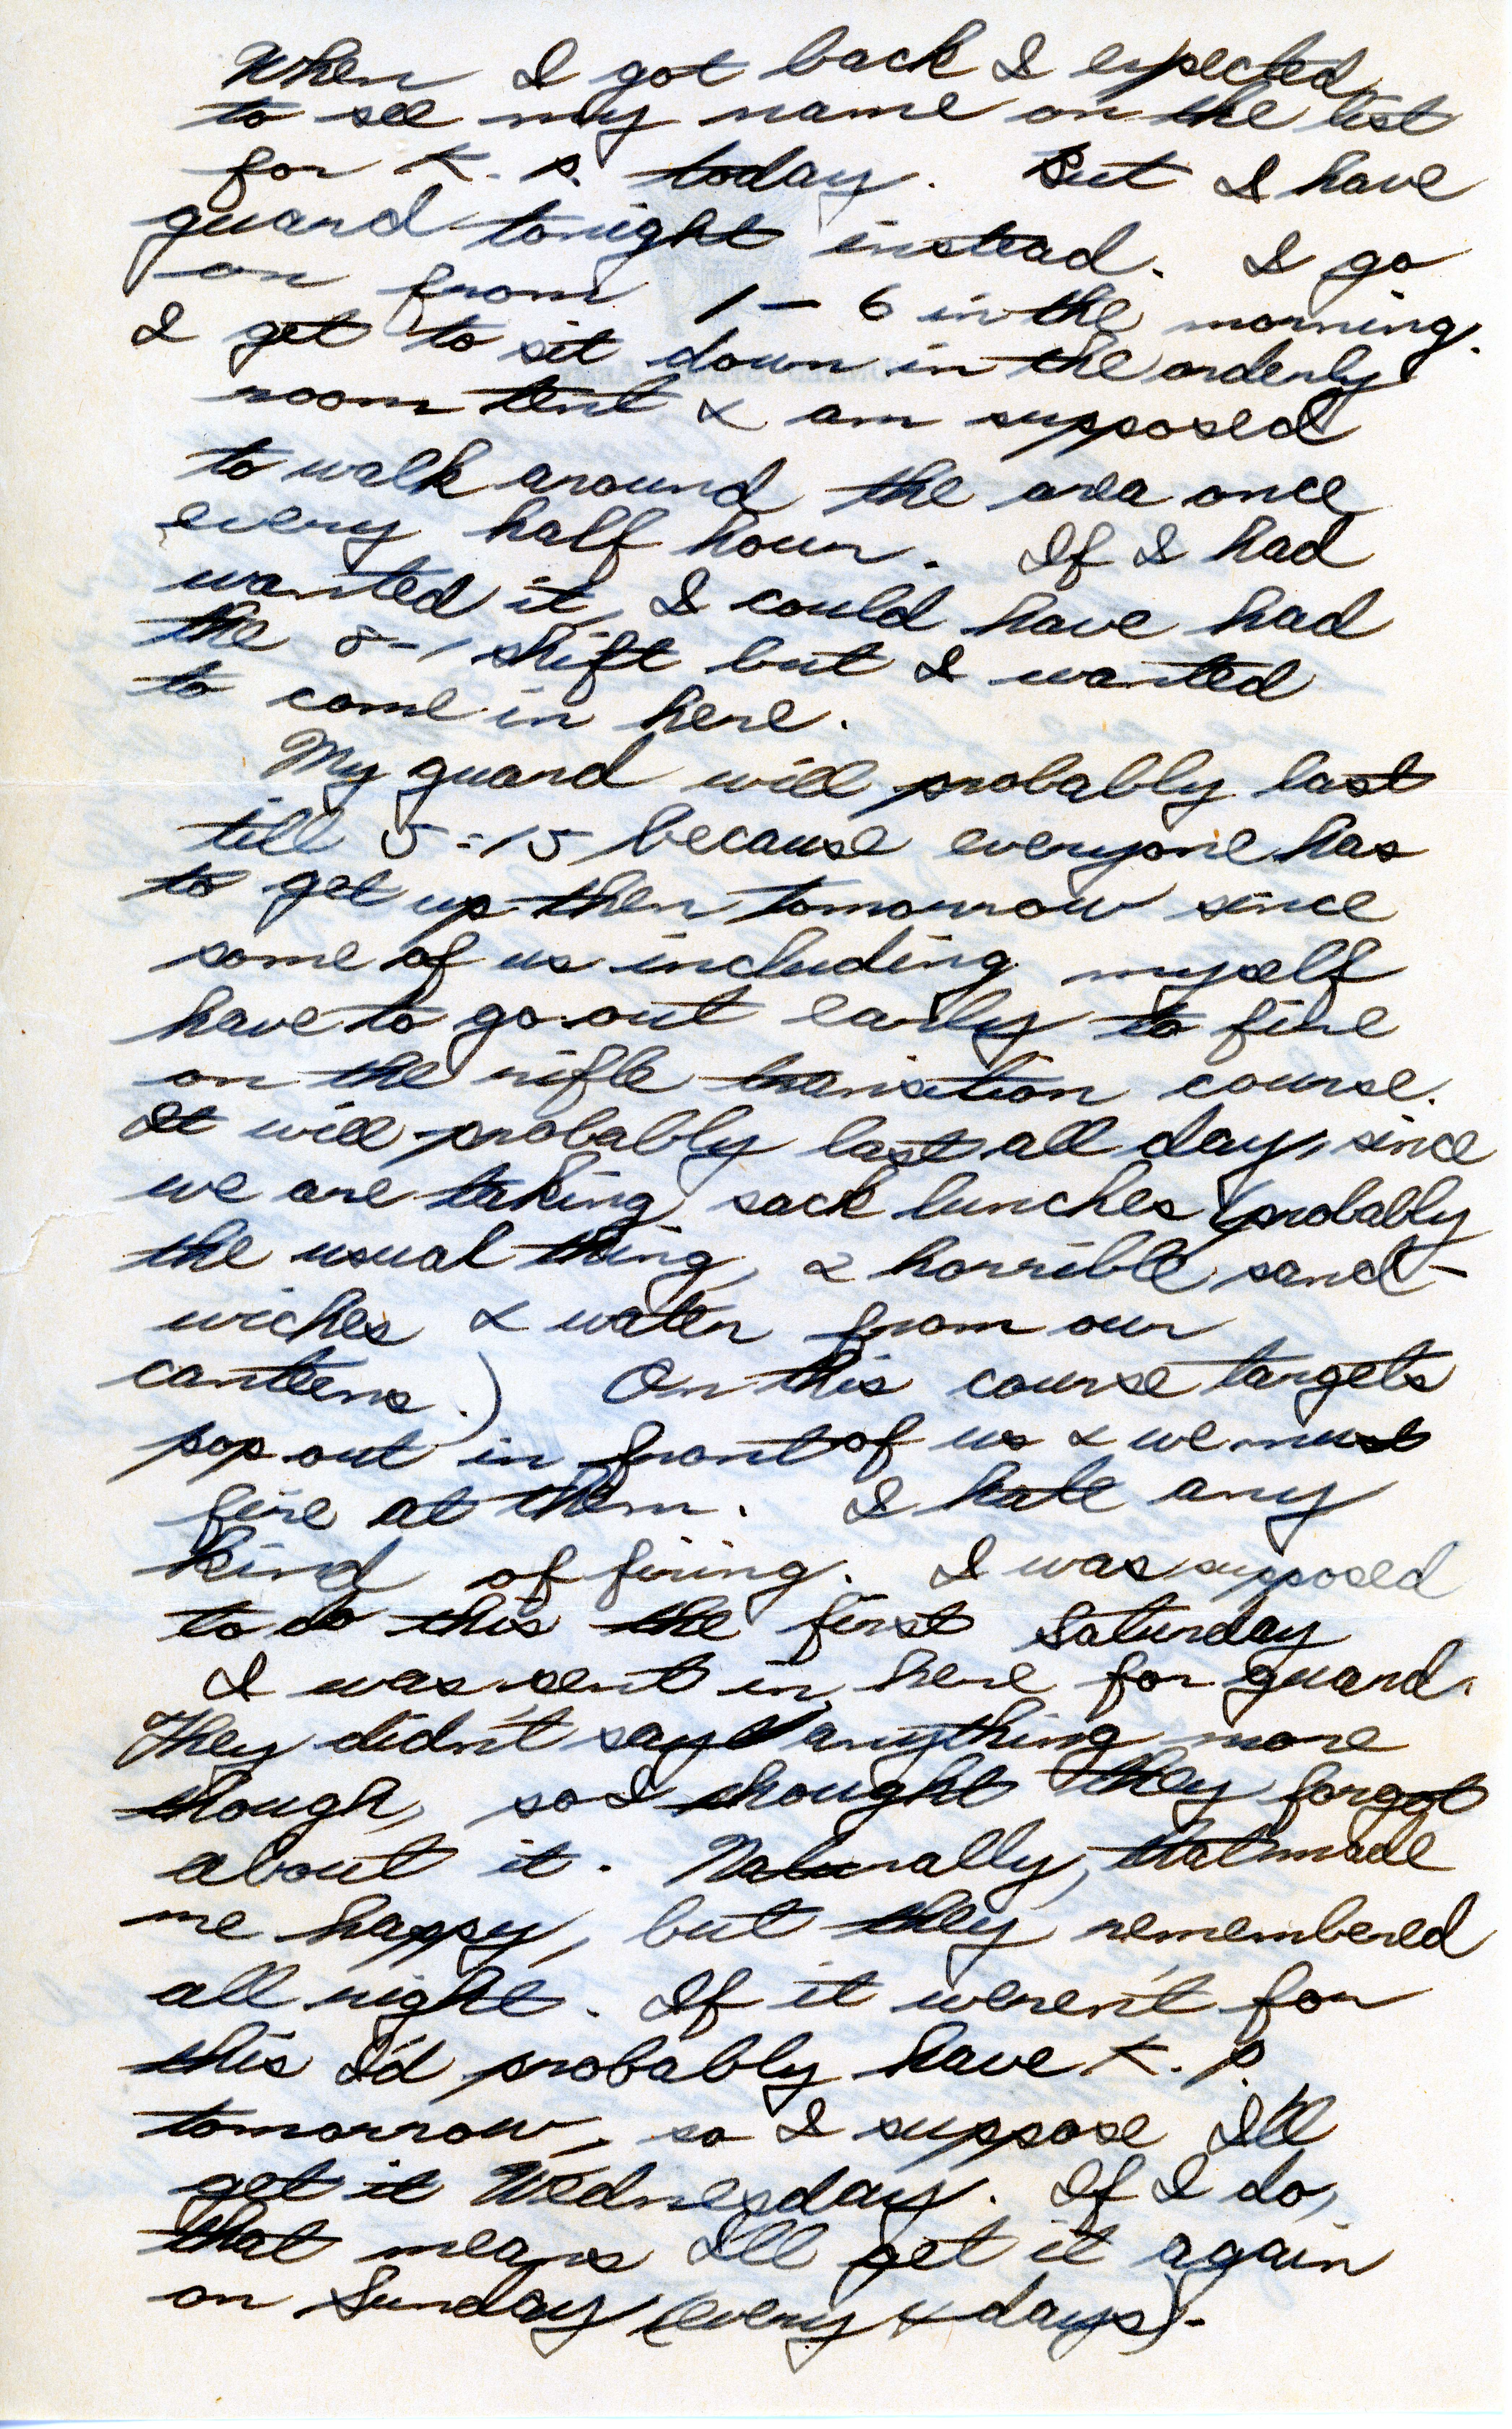 When I got back I expected
to see my name on the list
for K. P. today. But I have
guard tonight instead. I go
on from 1 - 6 in the morning.
I get to sit down in the orderly
room tent & am supposed
to walk around the area once
every half hour. If I had
wanted it, I could have had
the 8-1 shift but I wanted
to come in here.
My guard will probably last
till 5:15 because everyone has
to get up then tomorrow since
some of us including myself
have to go out early to fire
on the rifle transition course.
It will probably last all day, since
we are taking sack lunches (probably
the usual thing, 2 horrible sand-
wiches & water from our
canteens.) On this course targets
pop out in front of us & we must
fire at them. I hate any
kind of firing. I was supposed
to do this the first Saturday
I was sent in here for guard.
They didn't say anything more
though, so I thought they forgot
about it. Naturally, that made
me happy, but they remembered
all right. If it weren't for
this I'd probably have K. P.
tomorrow, so I suppose I'll
get it Wednesday. If I do,
that means I'll get it again
on Sunday (every 4 days).